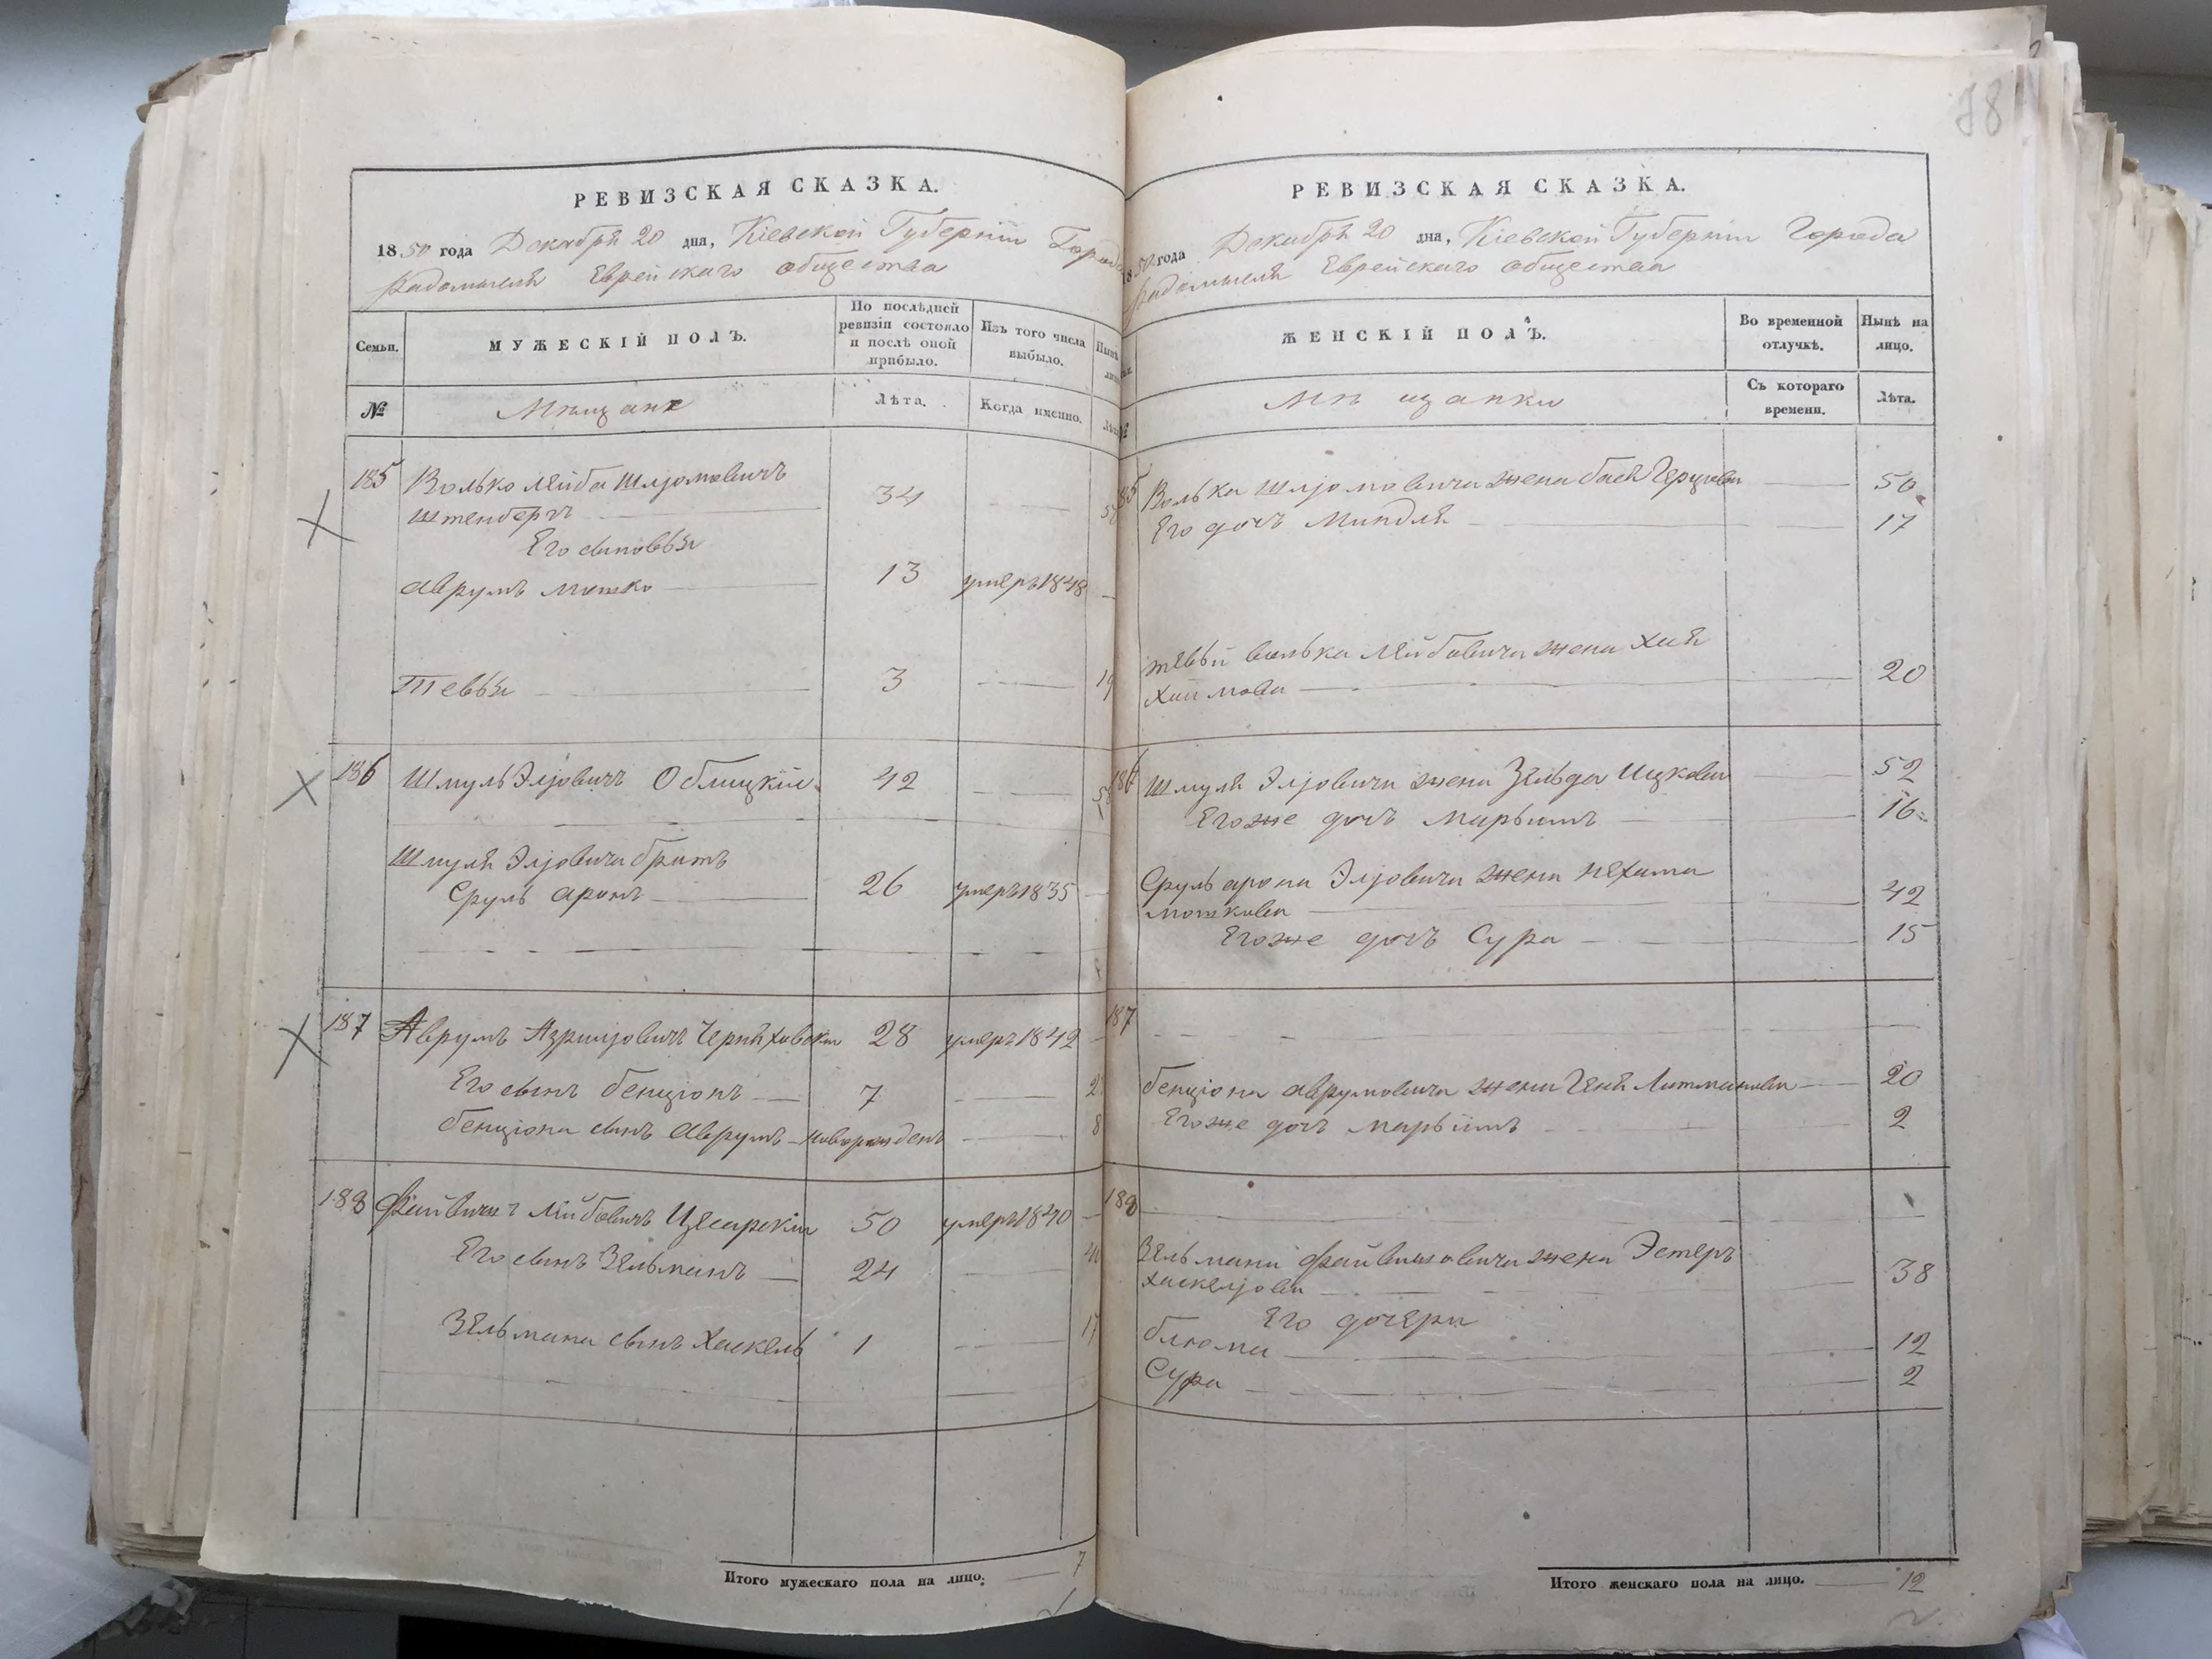 РЕВИЗСКАЯ СКАЗКА.
1850 года Декабря 20 дня, Кіевской Губерніи Города
Радомысля Еврейскаго общества
Семьи.
МУЖЕСКІЙ ПОЛЪ.
По послѣдней ревизіи состояло и послѣ оной прибыло.
Изъ того числа выбыло.
№
Мѣщане
Лѣта.
Когда именно.
185 Волько Лейба Шлiомовичъ
Штенбергъ 34
Его сыновья
Аврумъ Мошко 13 умеръ 1848
Тевья 3 19
186 Шмуль Элiовичъ Облицкій 42
Шмуля Элiовича братъ
Сруль Аронъ 26 умеръ 1835
187 Аврумъ Азрилiовичъ Черняховскій 28 умеръ 1842
Его сынъ Бенціонъ 7
Бенціона сынъ Аврумъ новорожденъ 8
188 Файвишъ Лейбовичъ Цесарскій 50 умеръ 1840
Его сынъ Зельманъ 24 40
Зельмана сынъ Хаскель 1 17
Итого мужескаго пола на лицо. 7
78
РЕВИЗСКАЯ СКАЗКА.
1850 года Декабря 20 дня, Кіевской Губерніи Города
Радомысля Еврейскаго общества
ЖЕНСКІЙ ПОЛЪ.
Во временной отлучкѣ.
Нынѣ на лицо.
Мѣщанки
Съ котораго времени.
Лѣта.
185 Волька Шлiомовича жена Бася Герцова 50
Его дочь Миндля 17
Тевьи Волька Лейбовича жена Хая
Хаимова 20
186 Шмуля Элiовича жена Зельда Ицкова 52
Его же дочь Марьимъ 16
Сруль Арона Элiовича жена Нехама
Мошкова 42
Его же дочь Сура 15
187
Бенціона Аврумовича жена Геня Литманова 20
Его же дочь Марьимъ 2
188
Зельмана Файвишовича жена Эстеръ
Хаскелiова 38
Его дочери
Блюма 12
Сура 2
Итого женскаго пола на лицо. 12